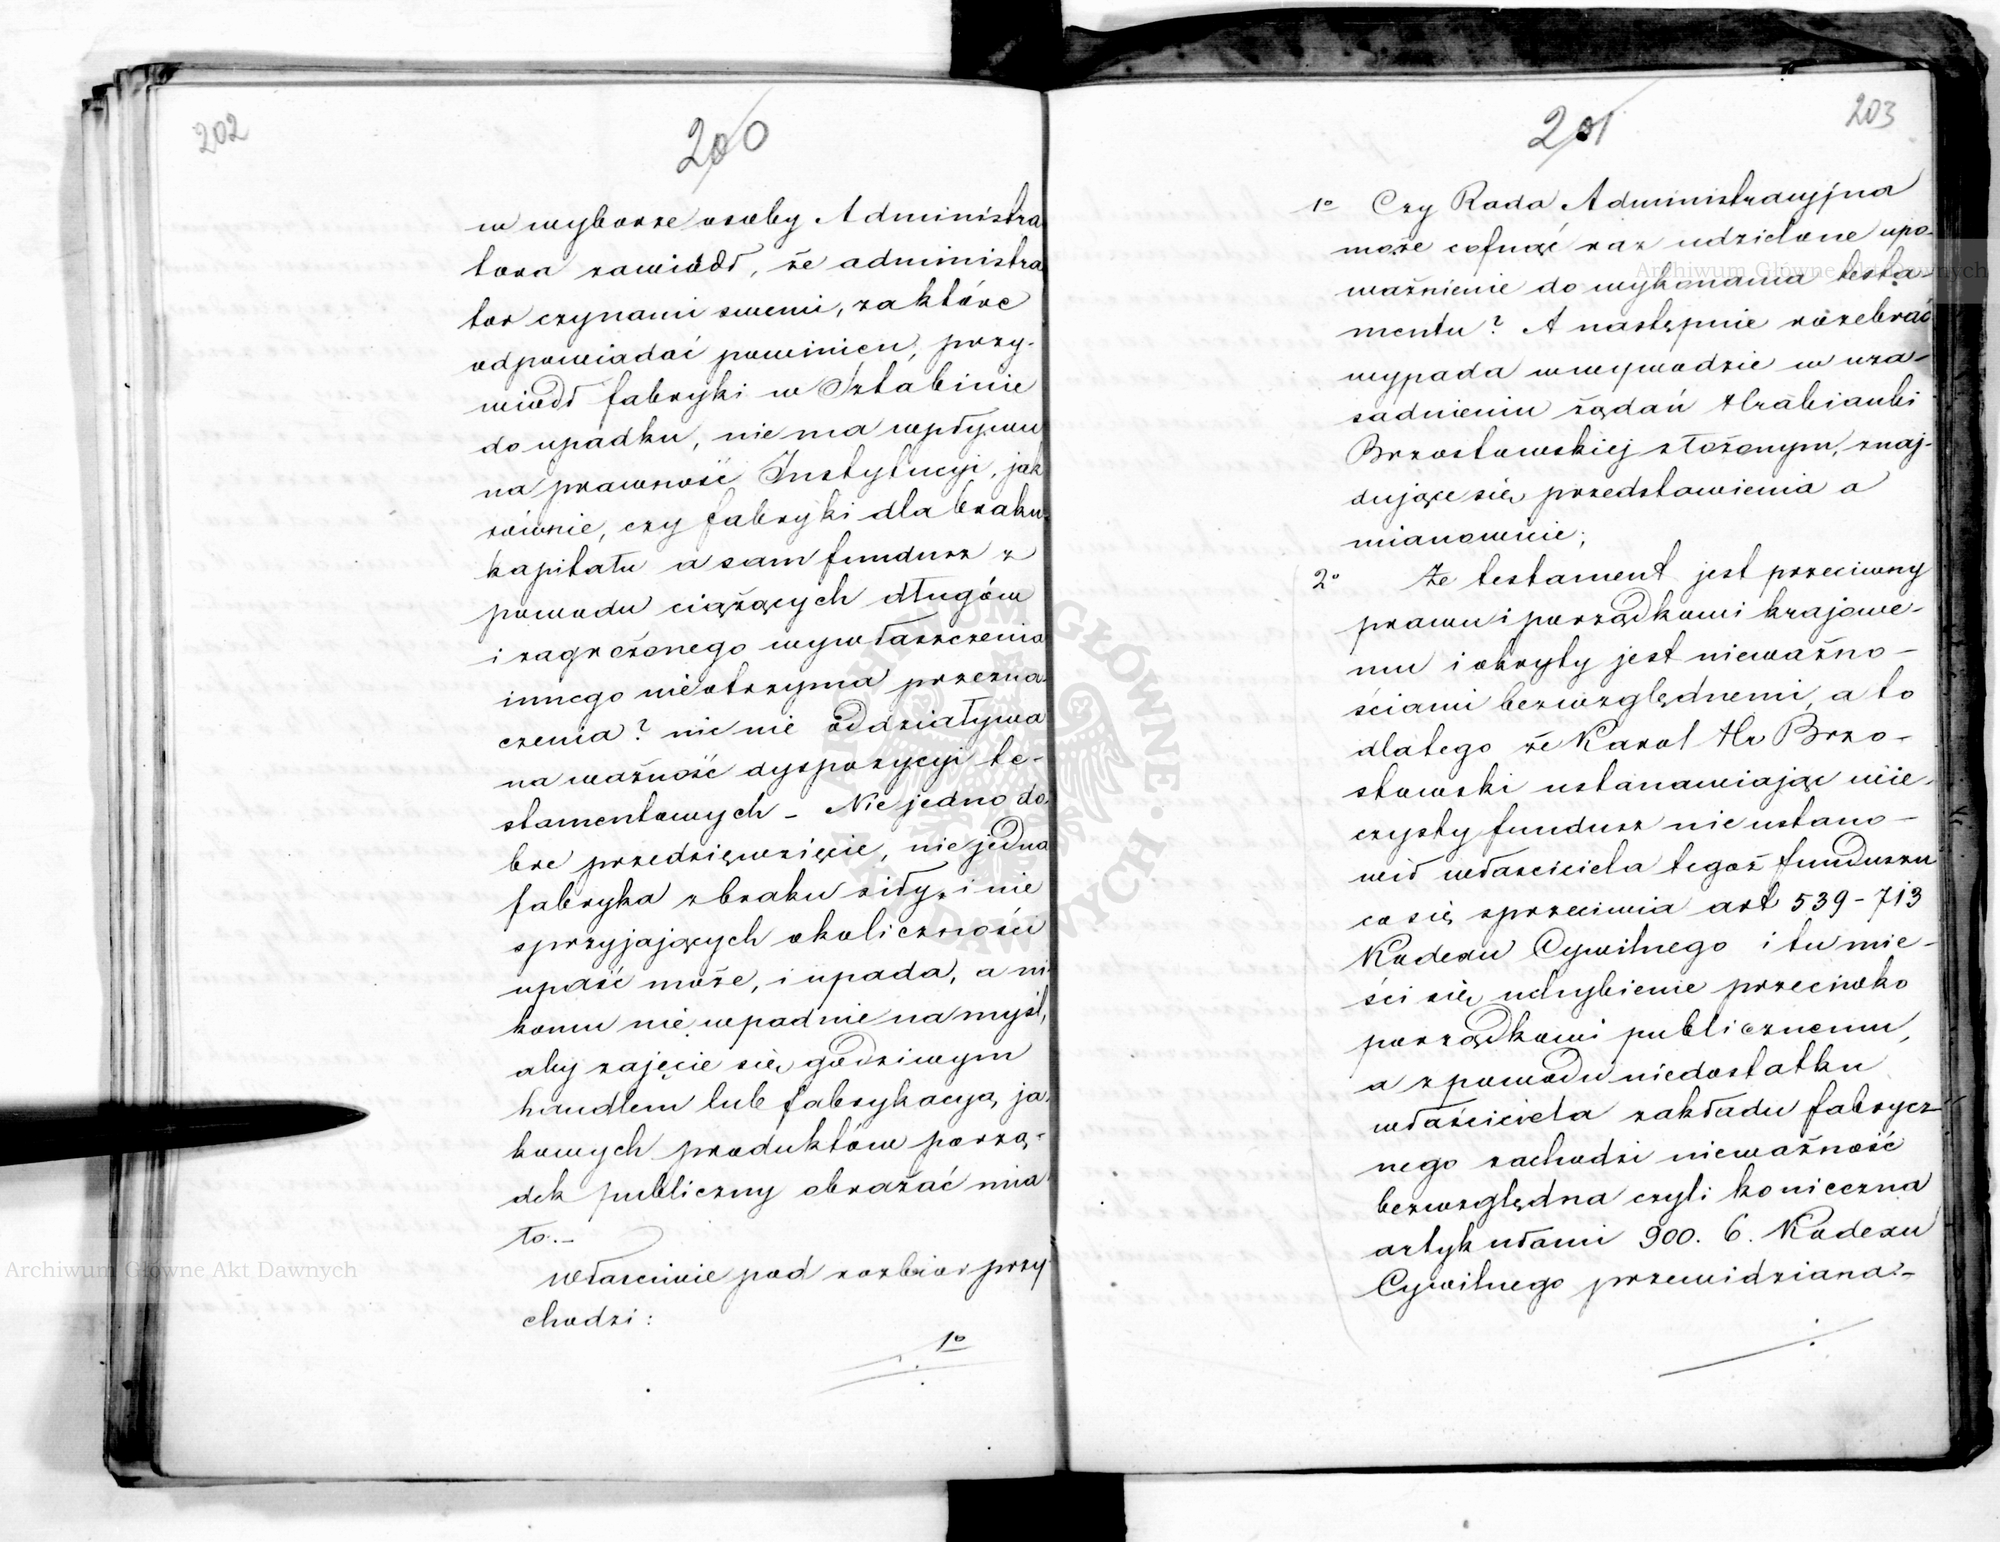 202
200
w wyborze osoby Administra
tora zawiódł, że administra
tor czynami swemi, za które
odpowiadać powinien, przy-
wiódł fabryki w Sztabinie
do upadku, nie ma wpływu
na prawność Instytucyi, jak
równie, czy fabryki dla braku
kapitału a sam fundusz z
powodu ciążących długów
i zagrożonego wywłaszczenia
innego nie otrzyma przezna-
czenia? nic nie oddziaływa
na ważność dyspozycyi te-
stamentowych – Nie jedno do
bre przedsięwzięcie, nie jedna
fabryka z braku siły, i nie
sprzyjających okoliczności
upaść może, i upada, a ni
komu nie wpadnie na myśl,
aby zajęcie się godziwym
handlem lub fabrykacyą ja
kowych produktów porzą-
dek publiczny obrażać mia
ło. –
Właściwie pod rozbiór przy
chodzi:
1o
203
201
1o Czy Rada Administracyjna
może cofnąć raz udzielone upo-
ważnienie do wykonania testa-
mentu? A następnie rozebrać
wypada w wywodzie w uza-
sadnieniu żądań Hrabianki
Brzostowskiej złożonym, znaj-
dujące się przedstawienia a
mianowicie;
2o Że testament jest przeciwny
prawu i porządkowi krajowe-
mu i okryty jest nieważno-
ściami bezwzględnemi, a to
dlatego że Karol Hr Brzo-
stowski ustanawiając wie-
czysty fundusz nie ustano-
wił właściciela tegoż funduszu
co się sprzeciwia art 539 – 713
Kodexu Cywilnego i tu mie-
ści się uchybienie przeciwko
porządkowi publicznemu,
a z powodu niedostatku
właściciela zakładu fabrycz-
nego zachodzi nieważność
bezwzględna czyli konieczna
artykułami 900. 6. Kodexu
Cywilnego przewidziana. –
Archiwum Główne Akt Dawnych
Archiwum Główne Akt Dawnych
ARCHIWUM GŁÓWNE AKT DAWNYCH